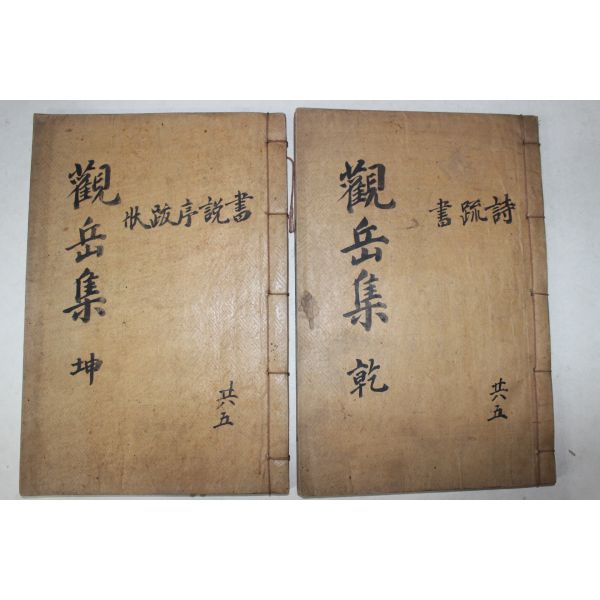 觀岳集 乾
詩疏書
共五
觀岳集 坤
書説序跋狀
共五